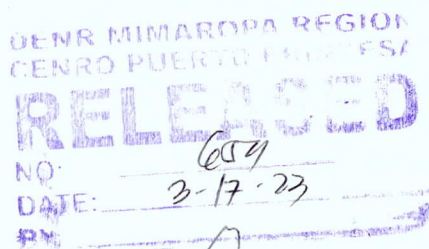 DENR MIMAROPA REGION
CENRO PUERTO
RELEASED
NO. 659
DATE: 3-17-23
BY